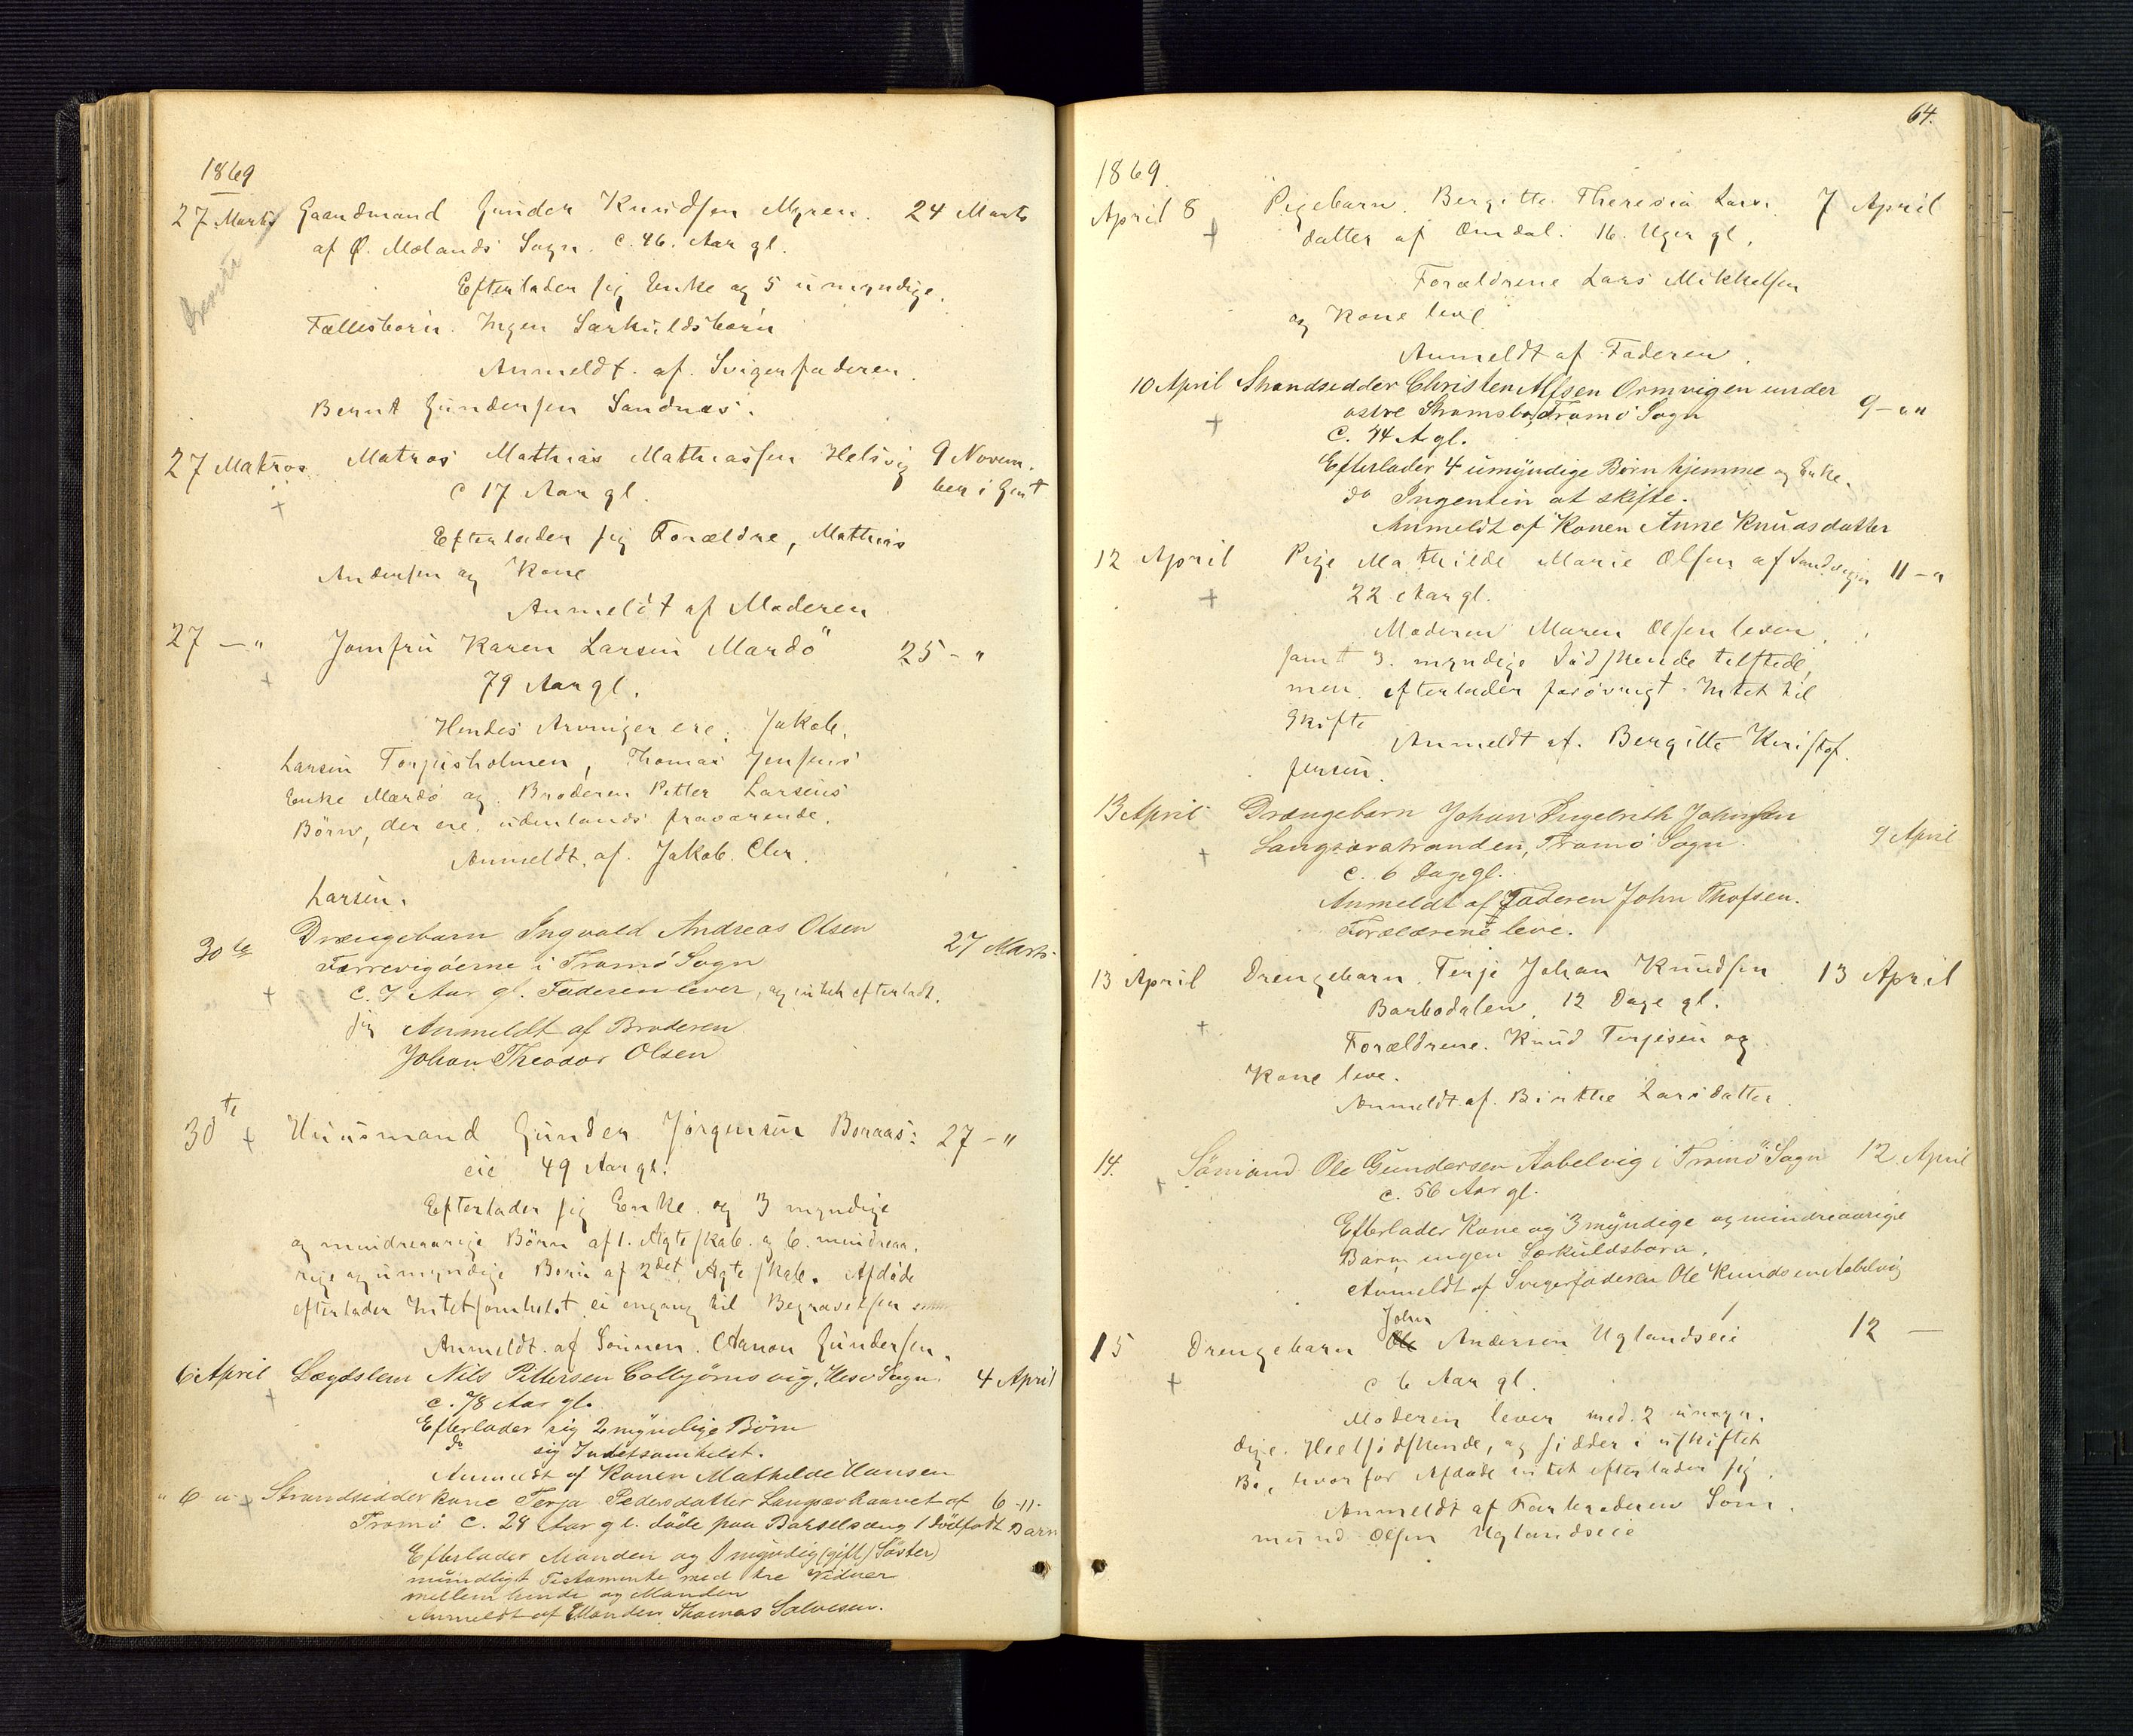 1869
27 Marts Gaardmand Gunder Knudsen Myren. 24 Marts
af Ø. Molands Sogn. C. 46. Aar gl.
Efterlader sig Enke og 5 umyndige
Fællesbørn. Ingen Særkuldsbørn
Anmeldt af Svigerfaderen
Bernt Gundersen Sandnæs.
27 Matros Mathias Mathiassen Helsvig 9 Novem-
c 17 Aar gl. ber i Gent
Efterlader sig Forældre, Mathias
Andersen og Kone
Anmeldt af Moderen
27 — " Jomfru Karen Larsen Mardö 25 - "
79 Aar gl.
Hendes Arvinger ere, Jakob
Larsen Torjusholmen, Thomas Jensens
Enke Mardö og Broderen Petter Larsens
Börn, der ere udenlands fraværende.
Anmeldt af Jakob
Larsen.
30te Drængebarn Ingvald Andreas Olsen 27 Marts
Færrevigöerne i Tromö Sogn
C. 7 Aar gl. Faderen lever, og intet efterladt
sig Anmeldt af Broderen
Johan Theodor Olsen
30te Huusmand Gunder Jörgensen Boraas- 27 - "
eie 49 Aar gl.
Efterlader sig Enke og 3 myndige
og mindreaarige Börn af 1. Ægteskab og 6 mindreaa-
rige og umyndige Börn af 2det Ægteskab. Afdöde
efterlader Intetsomhelst ei engang til Begravelsen
Anmeldt af Sönnen Aanon Gundersen.
6 April Lægdslem Nils Pettersen Colbjörnsvig, Hisö Sogn. 4 April
c. 78 Aar gl.
Efterlader sig 2 myndige Börn
do sig Intetsomhelst.
Anmeldt af Konen Mathilde Hansen
" 6 " Strandsidderkone Terja Pedersdatter Langsæ af 6 -"-
Tromö C. 29 Aar gl. döde paa Barselsæng 1 dödfödt Barn
Efterlader Manden og 1 myndig (gift) Söster
mundligt Testamente med tre Vidner
mellem hende og Manden
Anmeldt af Manden Thomas Salvesen.
64.
1869.
April 8 Pigebarn Bergitte Theresia Lars- 7 April
datter af Omdal. 16. Uger gl.
Forældrene Lars Mikkelsen
og Kone leve
Anmeldt af Faderen.
10 April Strandsidder Christen Alfsen Ormvigen under 9 - " "
östre Strømsbo, Tromö Sogn
C. 44 A gl.
Efterlader 4 umyndige Börn hjemme og Enke.
do Ingenting at skifte.
Anmeldt af Konen Anne Knudsdatter
12 April Pige Mathilde Marie Olsen af Sandvigen 11 - "
22 Aar gl.
Moderen Maren Olsen lever
samt 3. myndige Södskende tilstede,
men efterlader forövrigt Intet til
Skifte
Anmeldt af Bergitte Kristof-
fersen.
13 April Drængebarn Johan Ingebrith Johnsen
Langsæstranden, Tromö Sogn. 9 April
c. 6 Dage gl.
Anmeldt af Faderen John Thofsen.
Forældrene leve.
13 April Drengebarn Terje Johan Knudsen 13 April
Barbodalen, 12 Dage gl.
Forældrene Knud Terjesen og
Kone leve.
Anmeldt af Birthe Larsdatter
14. Sömand Ole Gundersen Aabelvig i Tromö Sogn 12 April
c. 56 Aar gl.
Efterlader Kone og 3 myndige og mindreaarige
Barn ingen Særkuldsbarn.
Anmeldt af Svigerfaderen Ole Knudsen Aabelvig
John
15 Drengebarn Ole Andersen Uglandseie 12 —
c 6 Aar gl.
Moderen lever med 2 umyn-
dige Heelsödskende, og sidder i uskiftet
Bo, hvorfor Afdöde intet efterlader sig.
Anmeldt af Farbroderen Söm-
mund Olsen Uglandseie